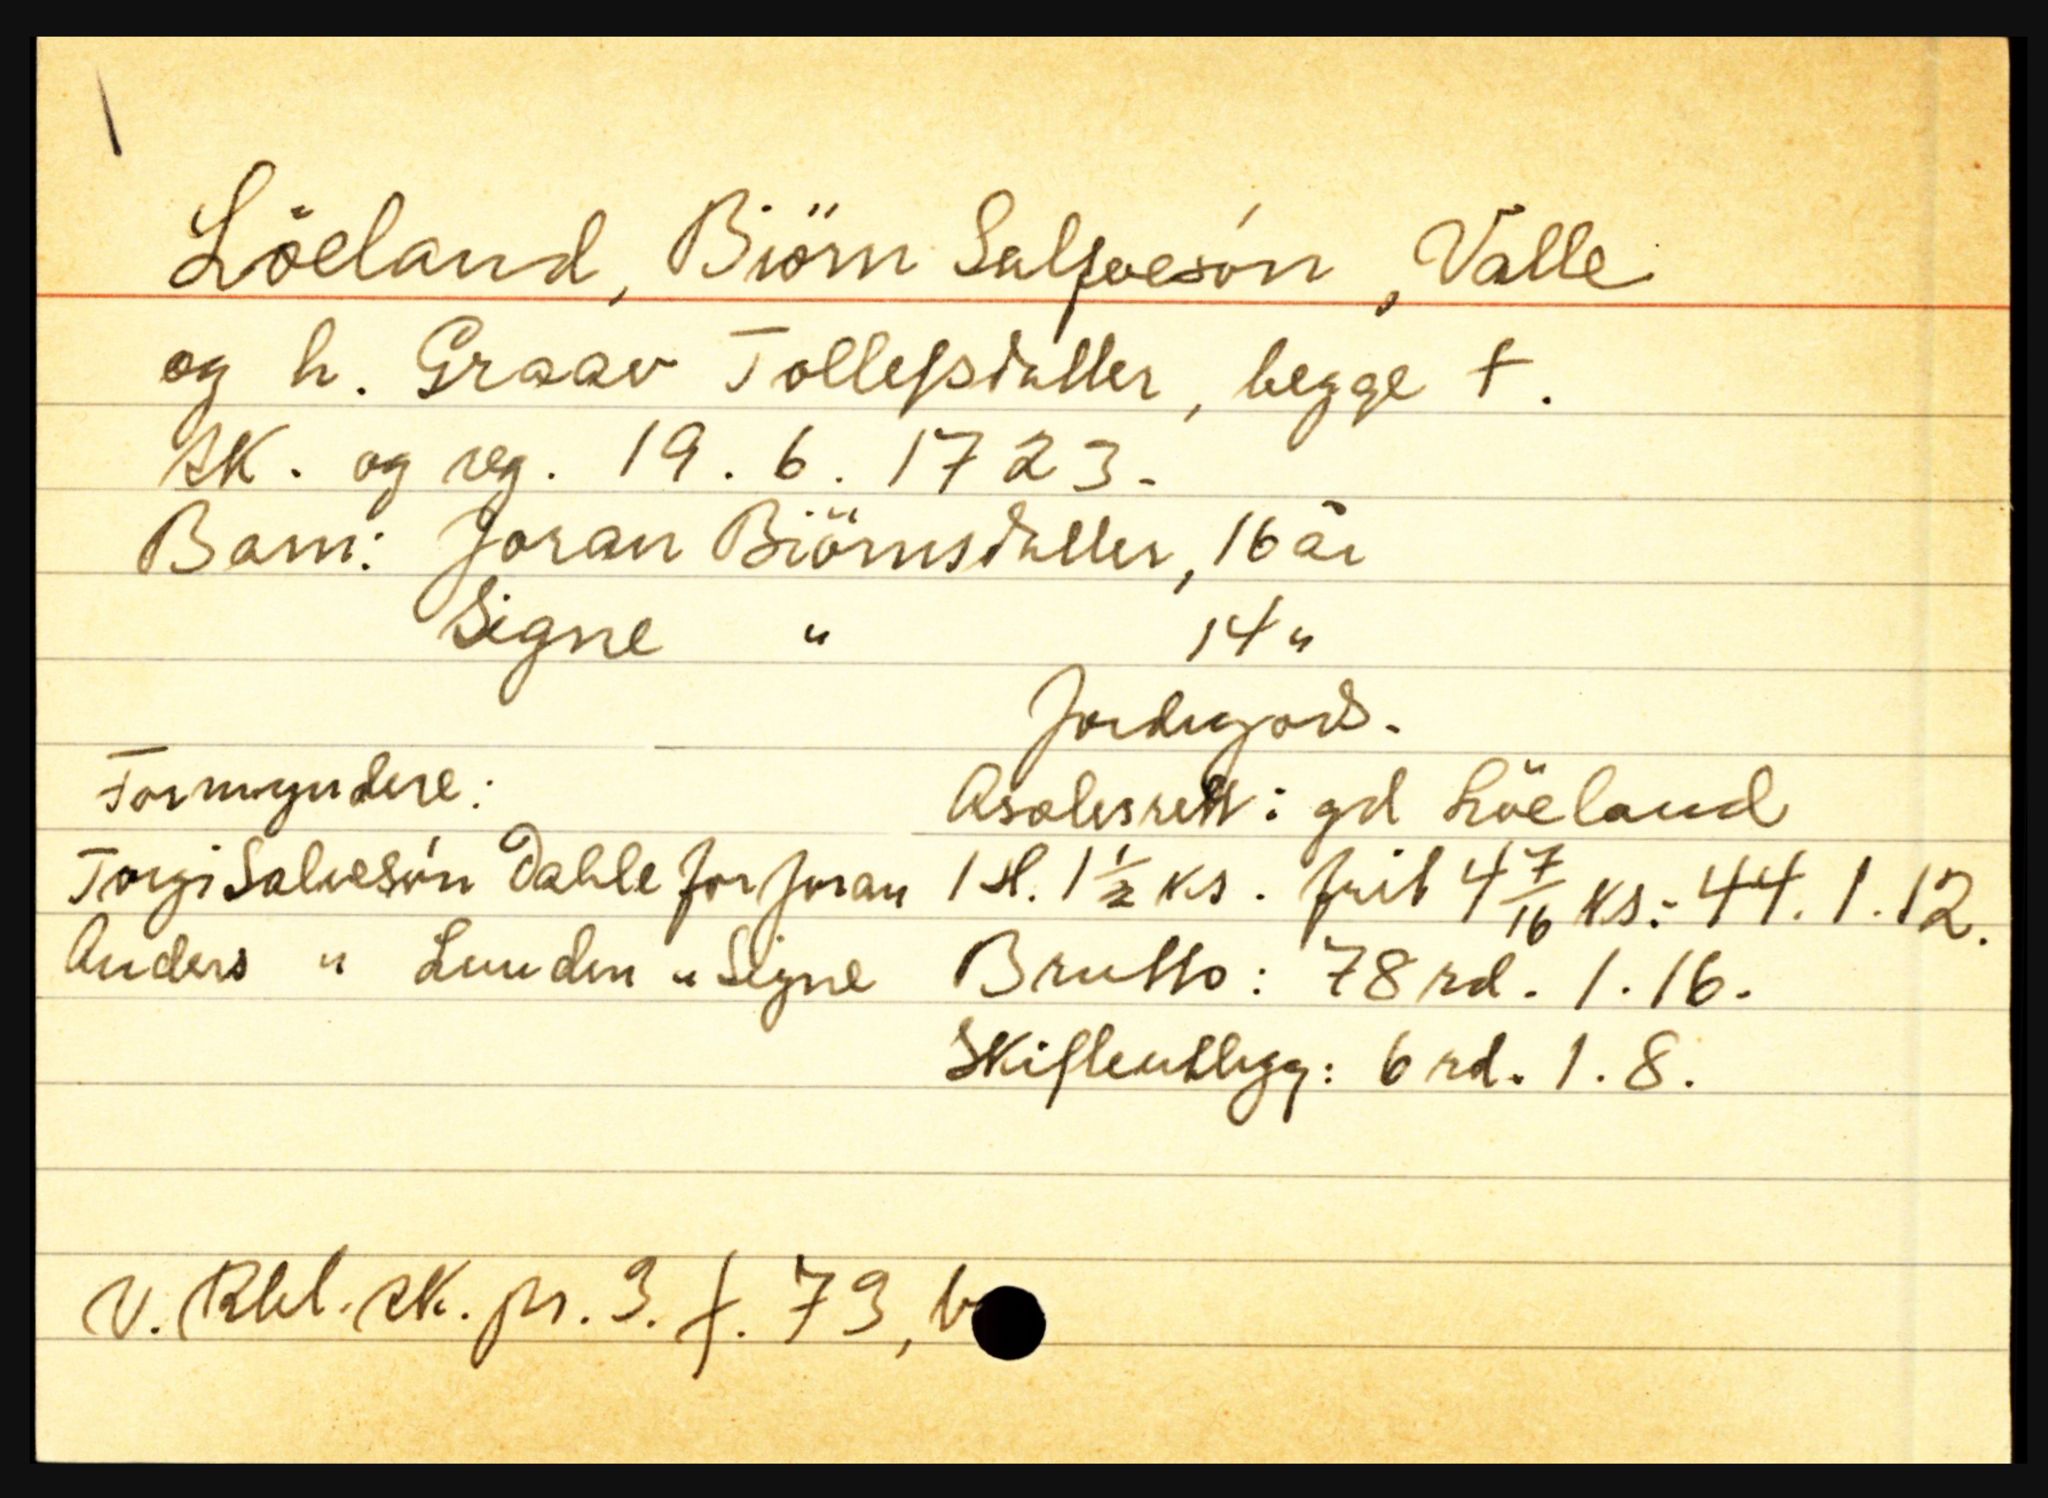 Löeland, Biörn Salfvesön, Valle
og h. Graav Tollefsdatter, begge †.
sk. og reg. 19. 6. 1723.
Barn: Joran Biörnsdatter, 16 år
Signe " 14 "
Jordegods.
Formyndere:
Asolesrett: gd Löeland
Torgi Salvesön Dahle for Joran
1 sl. 1 1/2 ks. frit 4 7/16 ks: 44. 1. 12.
Anders " Lunden " Signe
Brutto: 78 rd. 1. 16.
Skifteutlegg: 6 rd. 1. 8.
V. Rbl. sk. pr. 3. f. 73, b